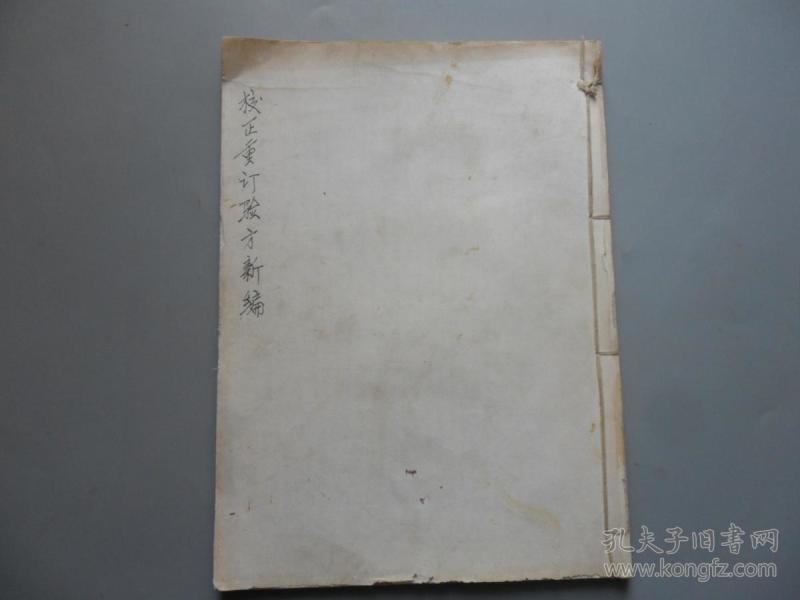 校正重订验方新编
孔夫子旧书网
www.kongfz.com